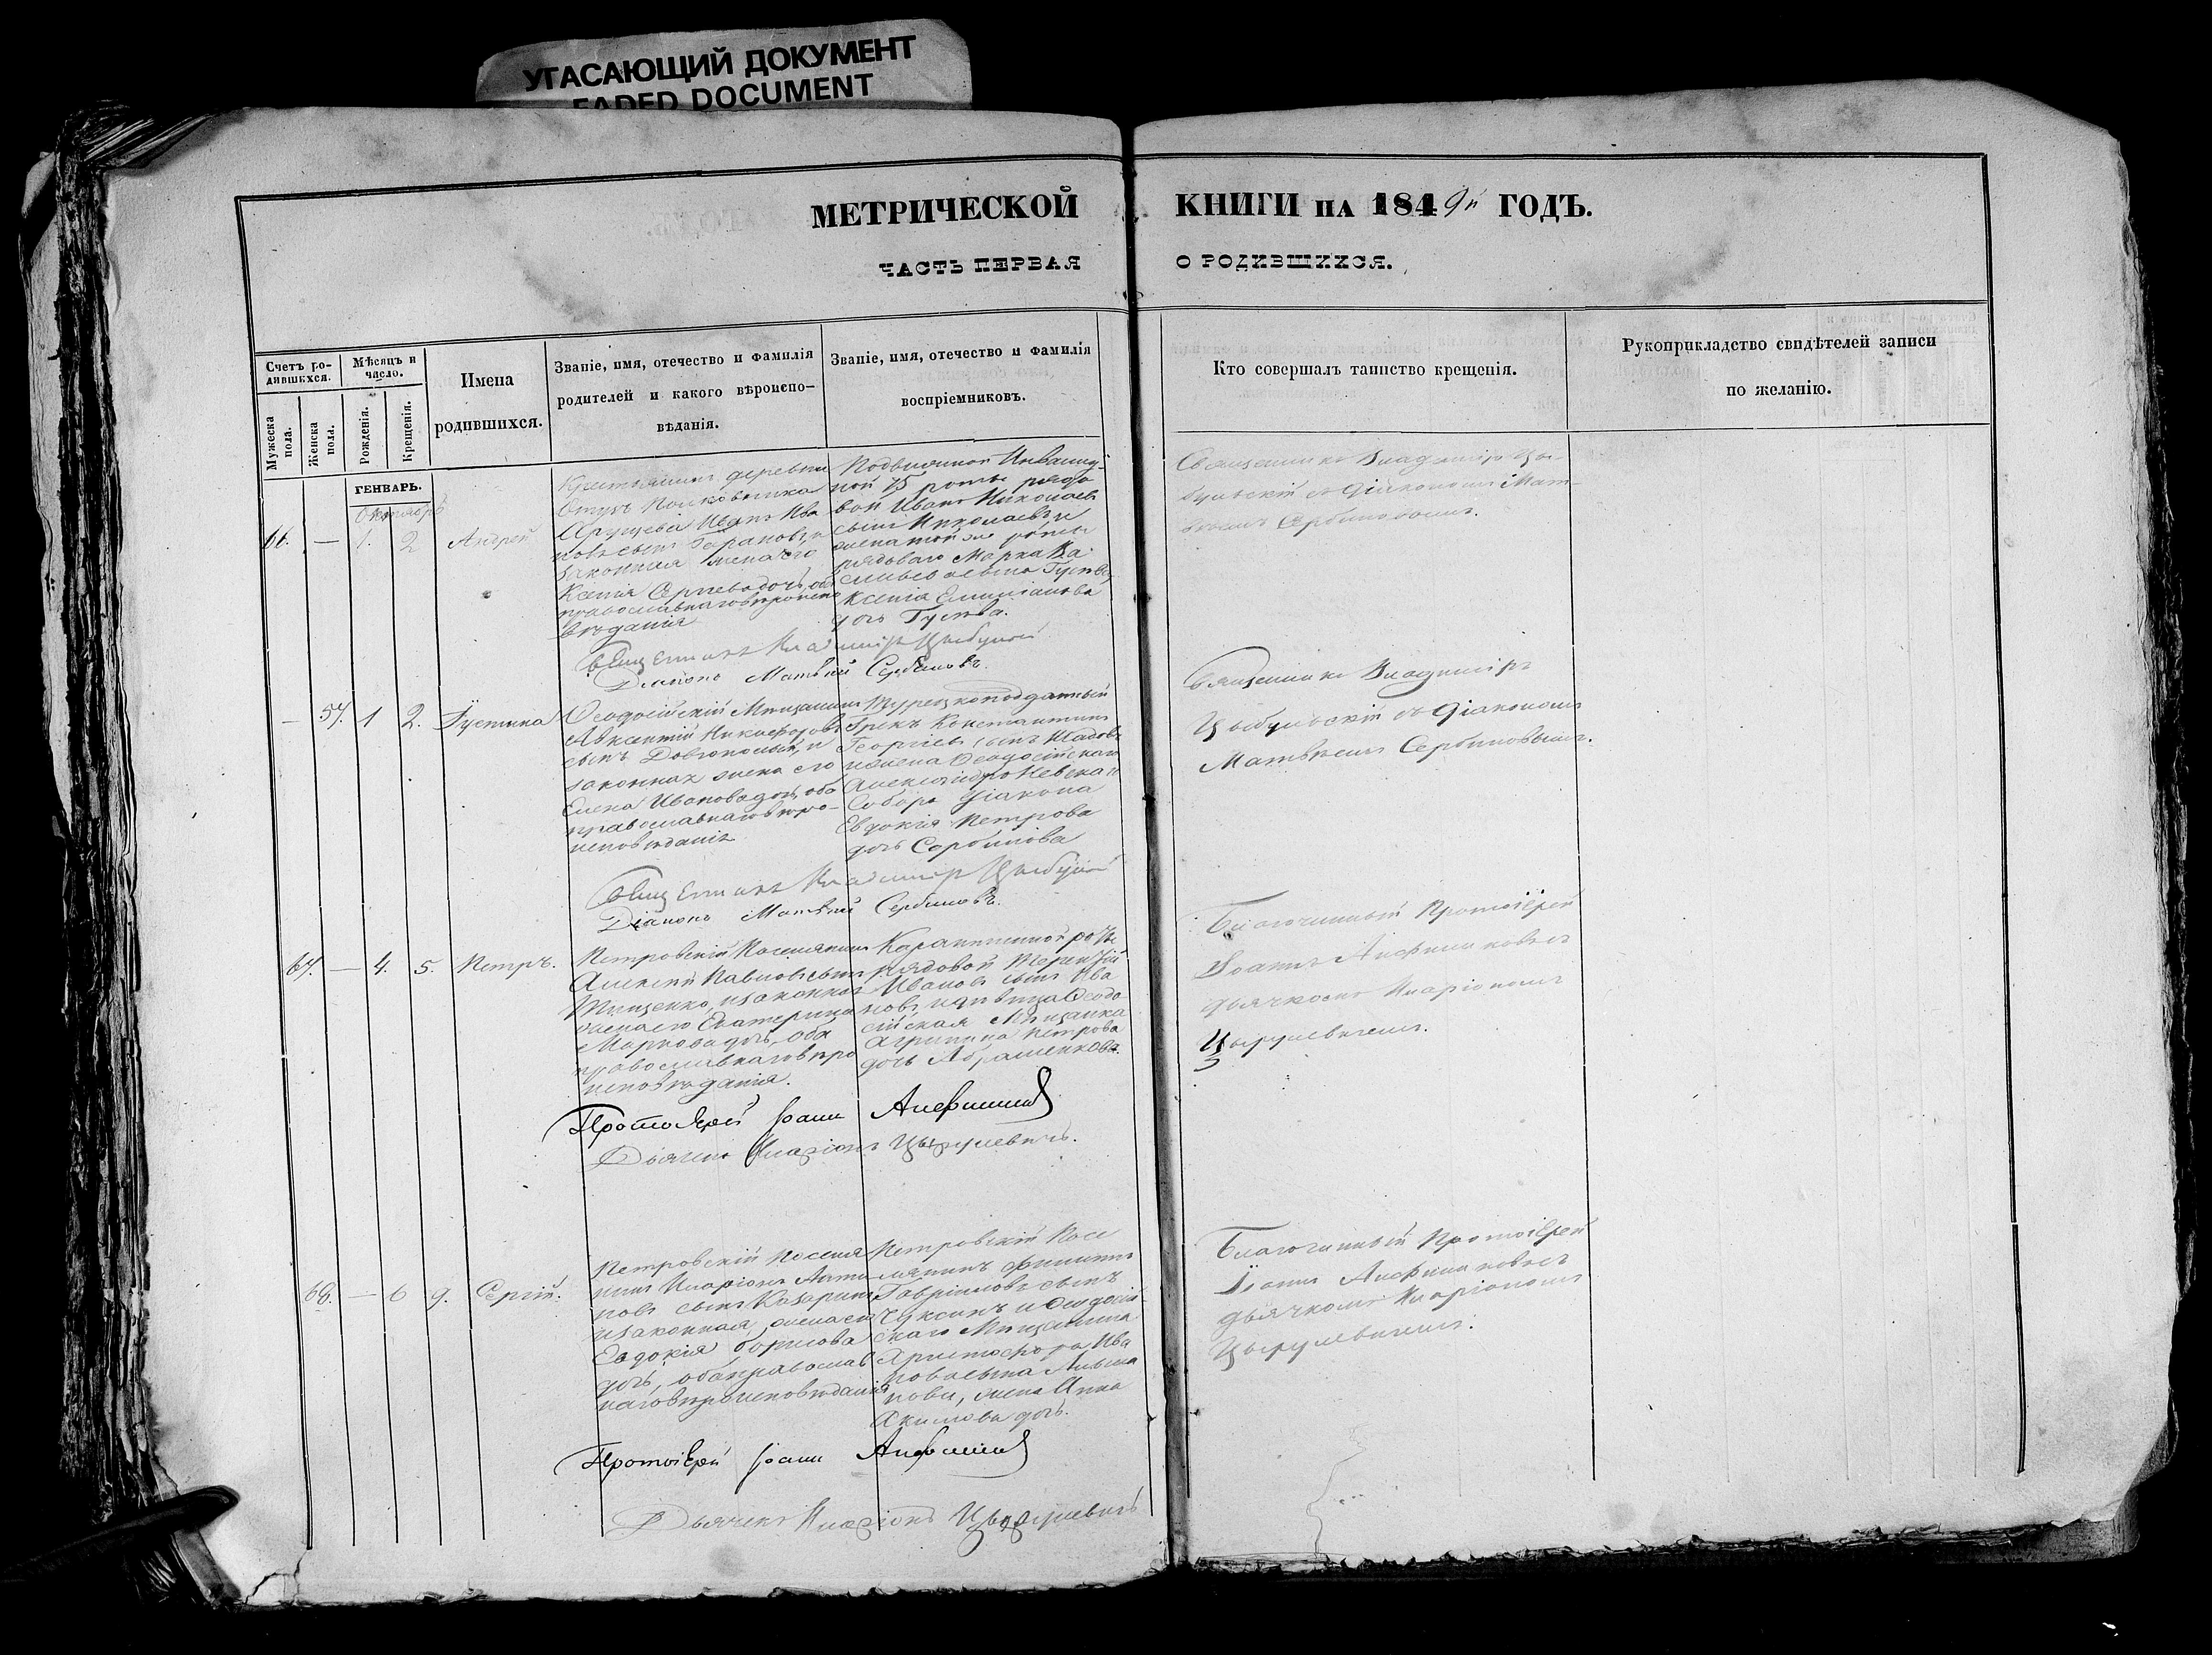 УГАСАЮЩИЙ ДОКУМЕНТ
FADED DOCUMENT
МЕТРИЧЕСКОЙ КНИГИ НА 1849й ГОДЪ.
ЧАСТЬ ПЕРВАЯ О РОДИВШИХСЯ.
Счетъ ро-
дившихся.
Мужеска
пола.
Женска
пола.
Мѣсяцъ и
число.
Рожденія.
Крещенія.
Имена
родившихся.
Званіе, имя, отечество и фамилія
родителей и какого вѣроиспо-
вѣданія.
Званіе, имя, отечество и фамилія
воспріемниковъ.
Кто совершалъ таинство крещенія.
Рукоприкладство свидѣтелей записи
по желанію.
ГЕНВАРЬ.
Октябрь
66. — 1. 2 Андрей
Крестьянинъ деревни
Отузъ Полковника
Иванъ Ива
новъ сынъ и
законная жена его
Ксенія Сергѣева дочь, оба
православнаго вѣроиспо
вѣданія
Подвижной Инвалид-
ной 15 роты рядо
вой Иванъ Николаевъ
сынъ Николаевъ и
жена той же роты
рядоваго Марка Ва
сильева сына
Ксенія Емиліанова
дочь Гусева.
Священникъ Владиміръ Цы-
бульскій съ діакономъ Мат-
вѣемъ Сербиновымъ.
Священникъ Владиміръ Цыбульскій
Діаконъ Матвѣй Сербиновъ.
— 57. 1 2. Іустина
Ѳеодосійскій Мѣщанинъ
Авксентій Никифоровъ
сынъ Довгополый, и
законная жена его
Елена Иванова дочь, оба
православнаго вѣро-
исповѣданія
Турецкоподданный
Грекъ Константинъ
Георгіевъ сынъ
и жена Ѳеодосійскаго
Александро Невскаго
Собора діакона
Евдокія Петрова
дочь Сербинова
Священникъ Владиміръ
Цыбульскій съ діакономъ
Матвѣемъ Сербиновымъ.
Священникъ Владиміръ Цыбульскій
Діаконъ Матвѣй Сербиновъ.
67. — 4. 5. Петръ.
Петровскій Поселянинъ
Алексѣй Павловъ сынъ
Тищенко, и законная
жена его Екатерина
Маркова дочь, оба
православнаго вѣро
исповѣданія.
Карантинной роты
рядовой Терентій
Ивановъ сынъ Ива
новъ, и дѣвица Ѳеодо
сійская Мѣщанка
Агрипина Петрова
дочь Абраменкова.
Благочинный Протоіерей
Іоаннъ Анфимиковъ съ
дьячкомъ Иларіономъ
Цырулевичемъ.
Протоіерей Іоаннъ
Дьячекъ Иларіонъ Цырулевичъ.
68. — 6 9. Сергій.
Петровскій Поселя
нинъ Иларіонъ Анти
повъ сынъ
и законная жена его
Евдокія Борисова
дочь, оба православ
наго вѣроисповѣданія
Петровскій Посе
лянинъ Филиппъ
Гавріиловъ сынъ
и Ѳеодосій
скаго Мѣщанина
Христофора Ива
нова сына
нова, жена Анна
Акимова дочь.
Благочинный Протоіерей
Іоаннъ Анфимиковъ съ
дьячкомъ Иларіономъ
Цырулевичемъ.
Протоіерей Іоаннъ
Дьячекъ Иларіонъ Цырулевичъ